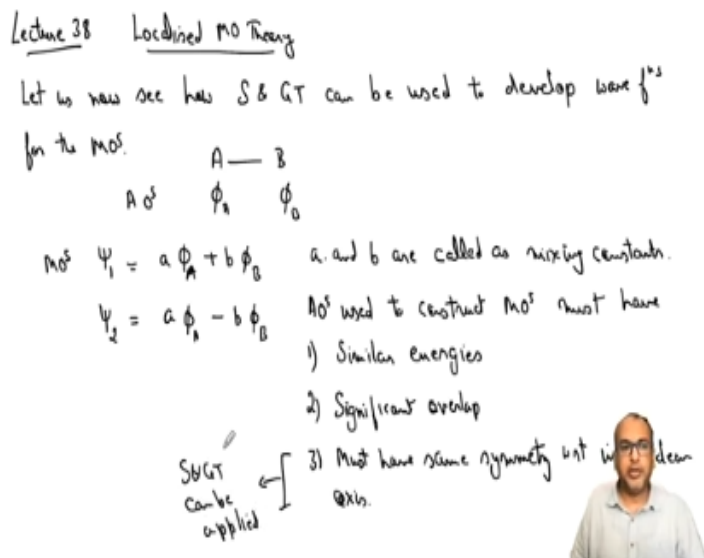 Lecture 38 Localised MO Theory
Let us now see how S & GT can be used to develop wave fⁿˢ
for the MOˢ.
A — B
AOˢ ϕ_A ϕ_B
MOˢ Ψ₁ = a ϕ_A + b ϕ_B a and b are called as mixing constants.
Ψ₂ = a ϕ_A − b ϕ_B AOˢ used to construct MOˢ must have
1) Similar energies
2) Significant overlap
3) Must have same symmetry wrt
axis.
S&GT
can be
applied